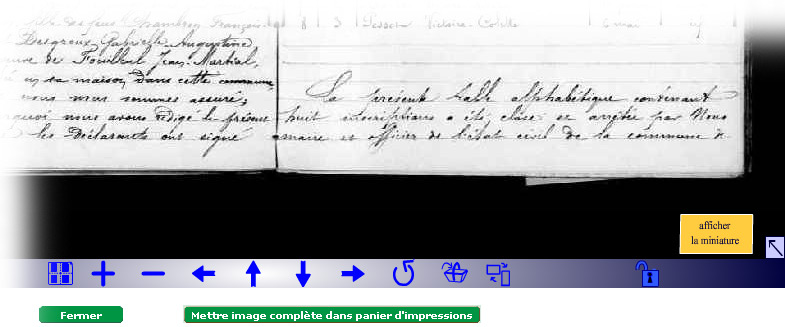 Chambrey François
8 3 Besson Victoire Colette 6 mai
Desgreux, Gabrielle Augustine
de Fouilhul Jean-Martial,
en sa maison, dans cette commune,
nous nous sommes assuré,
nous avons rédigé le présent
les déclarants ont signé
La présente table alphabétique contenant
huit inscriptions a été close et arrêtée par Nous
maire et officier de l'état civil de la commune de
afficher
la miniature
Fermer
Mettre image complète dans panier d'impressions